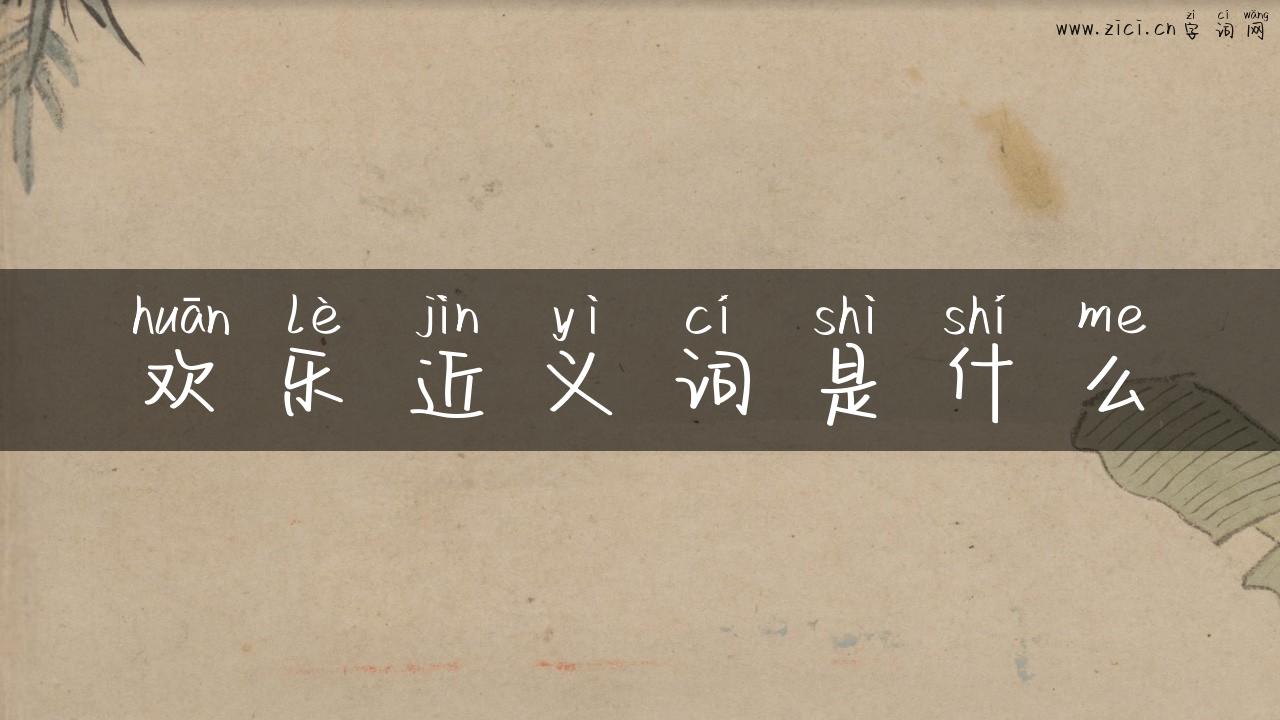 zì cí wǎng
www.zici.cn 字词网
huān lè jìn yì cí shì shí me
欢乐近义词是什么